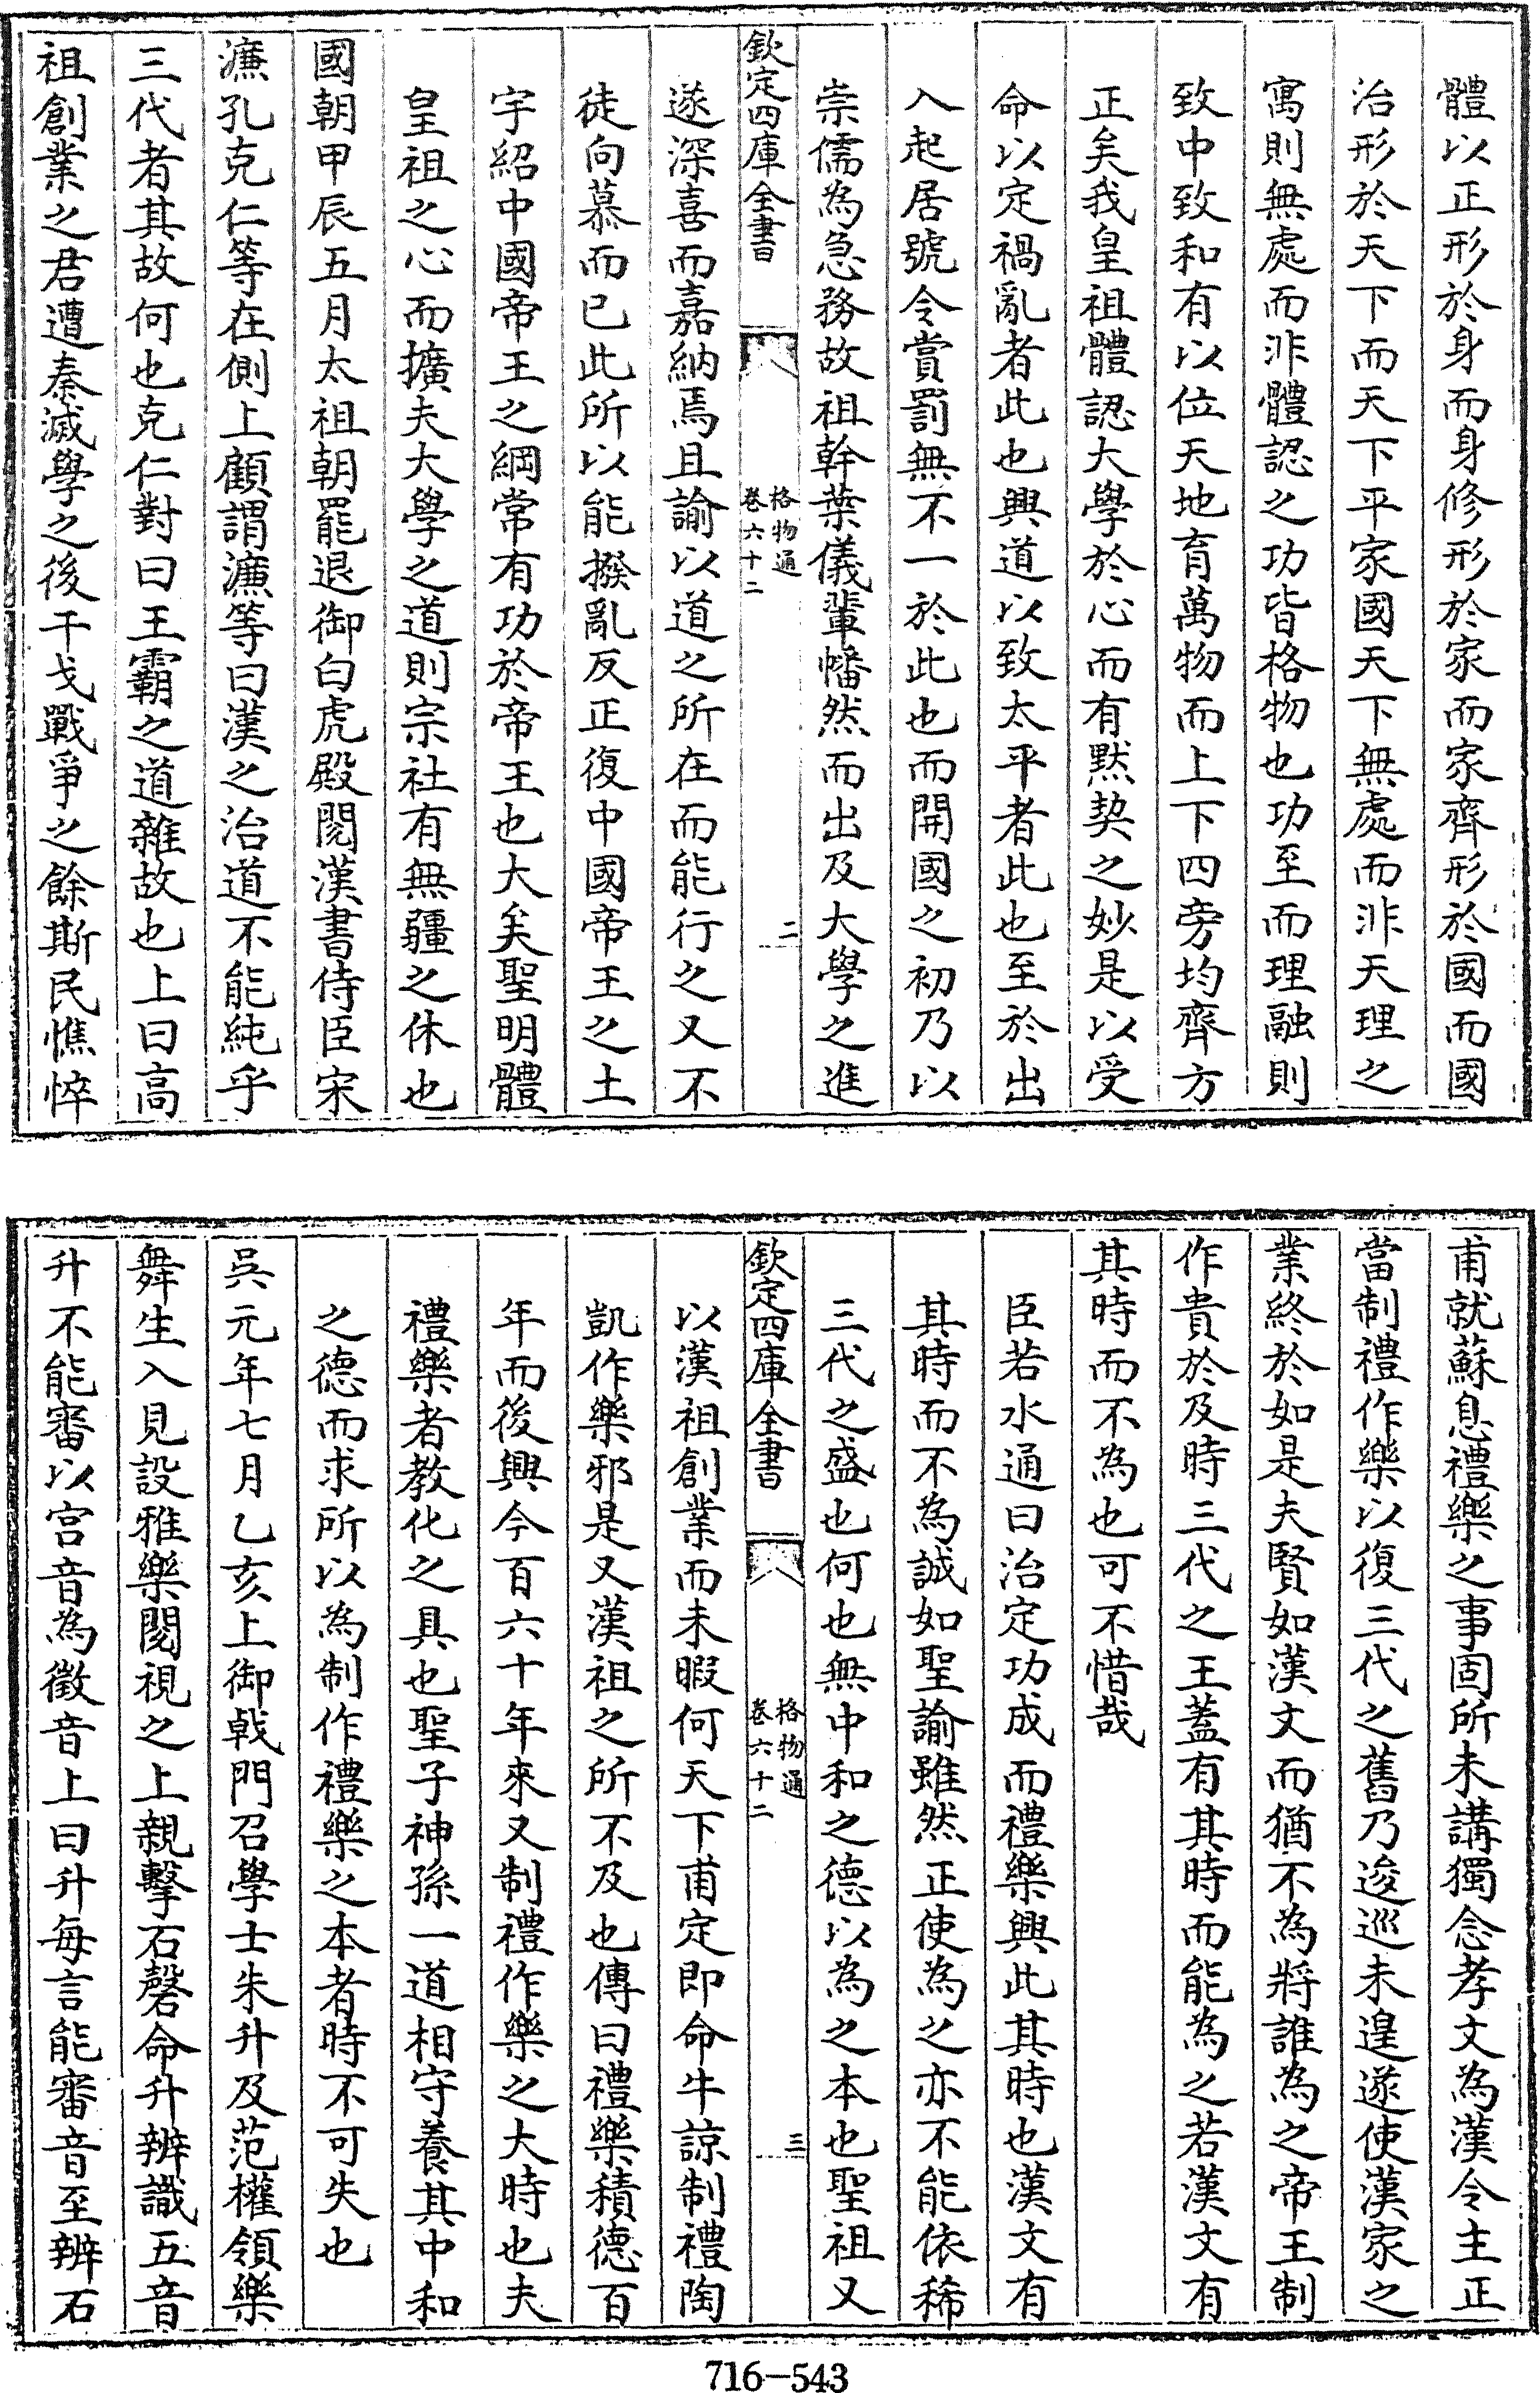 體以正形於身而身修形於家而家齊形於國而國
治形於天下而天下平家國天下無處而非天理之
寓則無處而非體認之功皆格物也功至而理融則
致中致和有以位天地育萬物而上下四旁均齊方
正矣我皇祖體認大學於心而有默契之妙是以受
命以定禍亂者此也興道以致太平者此也至於出
入起居號令賞罰無不一於此也而開國之初乃以
崇儒為急務故祖幹葉儀輩幡然而出及大學之進
欽定四庫全書
格物通
卷六十二
二
遂深喜而嘉納焉且諭以道之所在而能行之又不
徒向慕而已此所以能撥亂反正復中國帝王之土
宇紹中國帝王之綱常有功於帝王也大矣聖明體
皇祖之心而擴夫大學之道則宗社有無疆之休也
國朝甲辰五月太祖朝罷退御白虎殿閱漢書侍臣宋
濂孔克仁等在側上顧謂濂等曰漢之治道不能純乎
三代者其故何也克仁對曰王霸之道雜故也上曰高
祖創業之君遭秦滅學之後干戈戰爭之餘斯民憔悴
甫就蘇息禮樂之事固所未講獨念孝文為漢令主正
當制禮作樂以復三代之舊乃逡巡未遑遂使漢家之
業終於如是夫賢如漢文而猶不為將誰為之帝王制
作貴於及時三代之王蓋有其時而能為之若漢文有
其時而不為也可不惜哉
臣若水通曰治定功成而禮樂興此其時也漢文有
其時而不為誠如聖諭雖然正使為之亦不能依稀
三代之盛也何也無中和之德以為之本也聖祖又
欽定四庫全書
格物通
卷六十二
三
以漢祖創業而未暇何天下甫定即命牛諒制禮陶
凱作樂邪是又漢祖之所不及也傳曰禮樂積德百
年而後興今百六十年來又制禮作樂之大時也夫
禮樂者教化之具也聖子神孫一道相守養其中和
之德而求所以為制作禮樂之本者時不可失也
吳元年七月乙亥上御戟門召學士朱升及范權領樂
舞生入見設雅樂閱視之上親擊石磬命升辨識五音
升不能審以宮音為徵音上曰升每言能審音至辨石
716-543